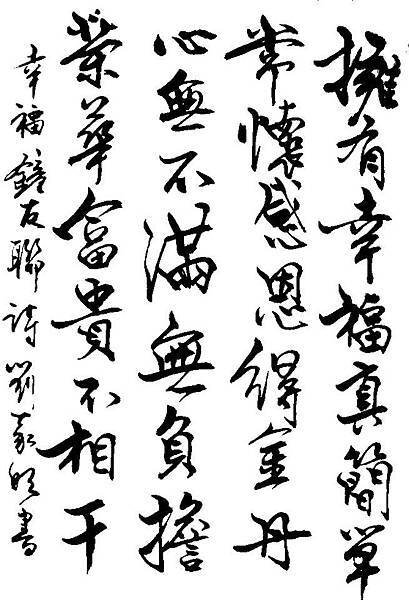 擁有幸福真簡單
常懷感恩得金丹
心無不滿無負擔
榮華富貴不相干
幸福鏡友聯詩劉家明書